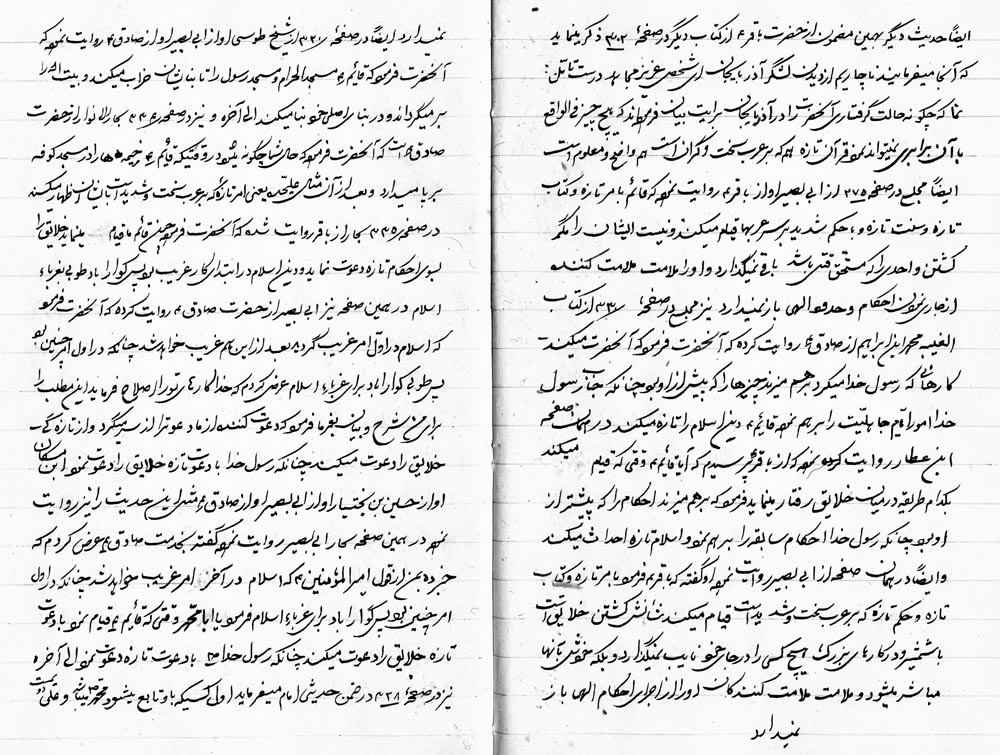 ایضاً حدیث دیگر بهمین مضمون از حضرت باقر ع از کتاب دیگر در صفحهٔ ۳۷۲ ذکر مینماید
که آنجا میفرمایند ناچاریم از دیدن لشگر آذربایجان ای شخص عزیز درست تأمل
نما که چگونه حالت گرفتاری آنحضرت را در آذربایجان برایت بیان فرموده‌اند که هیچ چیز فی الواقع
با آن برابری نمیتواند نمود قرآن تازه که بر عرب سخت و گران است هم واضح و معلوم است
ایضاً مجلسی در صفحه ۳۷۵ از ابی بصیر او از باقر ع روایت نموده که قائم با امر تازه و کتاب
تازه و سنت تازه و با حکم شدید بر سر عربها قیام میکند و نیست ایشان را مگر
کشتن و احدی را که مستحق قتل باشد باقی نمیگذارد و او را ملامت ملامت کننده
از جاری نمودن احکام و حدود الهی باز نمیدارد نیز مجلسی در صفحهٔ ۳۳۱ از کتاب
الغیب محمد ابن ابراهیم از صادق ع روایت کرده که آنحضرت فرمود که آنحضرت میکند
کارهائی که رسول خدا میکرد بر هم میزند چیزها را که پیش از او بود چنانکه جناب رسول
خدا امور ایام جاهلیت را بر هم نمود قائم ع دین اسلام را تازه میکند در همان صفحه
ابن عطار روایت کرده نموده که از باقر ع پرسیدم که آیا قائم ع وقتی که قیام میکند
بکدام طریقه در میان خلایق رفتار مینماید فرمود که بر هم میزند احکام را که پیشتر از
او بود چنانکه رسول خدا احکام سابقه را بر هم نمود و اسلام تازه احداث میکند
و ایضاً در همان صفحه از ابی بصیر روایت نموده او گفته که باقر ع فرمود با امر تازه و کتاب
تازه و حکم تازه که بر عرب سخت و شدید است قیام میکند شأنش کشتن خلایق است
با شمشیر و در کارهای بزرگ هیچ کسی را در جای خود نایب نمیگذارد و بلکه خودش بآنها
مباشر میشود و ملامت ملامت کنندگان او را از اجرای احکام الهی باز
نمیدارد
نمیدارد ایضاً در صفحهٔ ۳۳۰ از شیخ طوسی او از ابی بصیر او از صادق ع روایت نموده که
آنحضرت فرمود که قائم ع مسجد الحرام و مسجد رسول را تا بنایشان خراب میکند و بیت الله را
بر میگرداند و در بنا بر اصل خود بنا میکند الی آخره و نیز در صفحه ۳۴۴ بحار الانوار از حضرت
صادق ع است که آنحضرت فرمود که حال شما چگونه میشود در وقتیکه قائم ع خیمه‌ها را در مسجد کوفه
بر پا میدارد و بعد از آن مثال علیحده یعنی امر تازه که بر عرب سخت و شدید است بایشان اظهار میکند
در صفحه ۳۴۵ بحار از باقر روایت شده که آنحضرت فرمود چنین قائم ما قیام مینماید خلایق را
بسوی احکام تازه دعوت نماید و دین اسلام در ابتدای کار غریب بود پس گوارا باد طوبی بغرباء
اسلام در همین صفحه نیز ابی بصیر از حضرت صادق ع روایت کرده که آنحضرت فرمود
که اسلام در اول امر غریب گردید بعد از این هم غریب خواهد شد چنانکه در اول امر چنین بود
پس طوبی گوارا باد برای غرباء اسلام عرض کردم که خدا کارهای تو را اصلاح فرماید این مطلب را
برای من شرح و بیان بفرما فرمود که دعوت کننده از ما دعوت را از سر میگیرد و از تازه
خلایق را دعوت میکند چنانکه رسول خدا با دعوت تازه خلایق را دعوت نمود ابن مسکان
او از حسین بن بختیار او از ابی بصیر او از صادق ع مثل این حدیث را نیز روایت
نموده در همین صفحه بحار ابی بصیر روایت نموده گفته بخدمت صادق ع عرض کردم که
خبر ده بمن از قول امیر المؤمنین ع که اسلام در آخر امر غریب خواهد شد چنانکه در اول
امر چنین بود پس گوارا باد برای غرباء اسلام فرمود یا ابا محمد وقتی که قائم ع قیام نمود با دعوت
تازه خلایق را دعوت میکند چنانکه رسول خدا ص با دعوت تازه دعوت نمود الی آخره
نیز در صفحهٔ ۴۲۸ در ضمن حدیثی امام میفرماید اول کسیکه باو تابع میشود محمد ص میباشد و علی